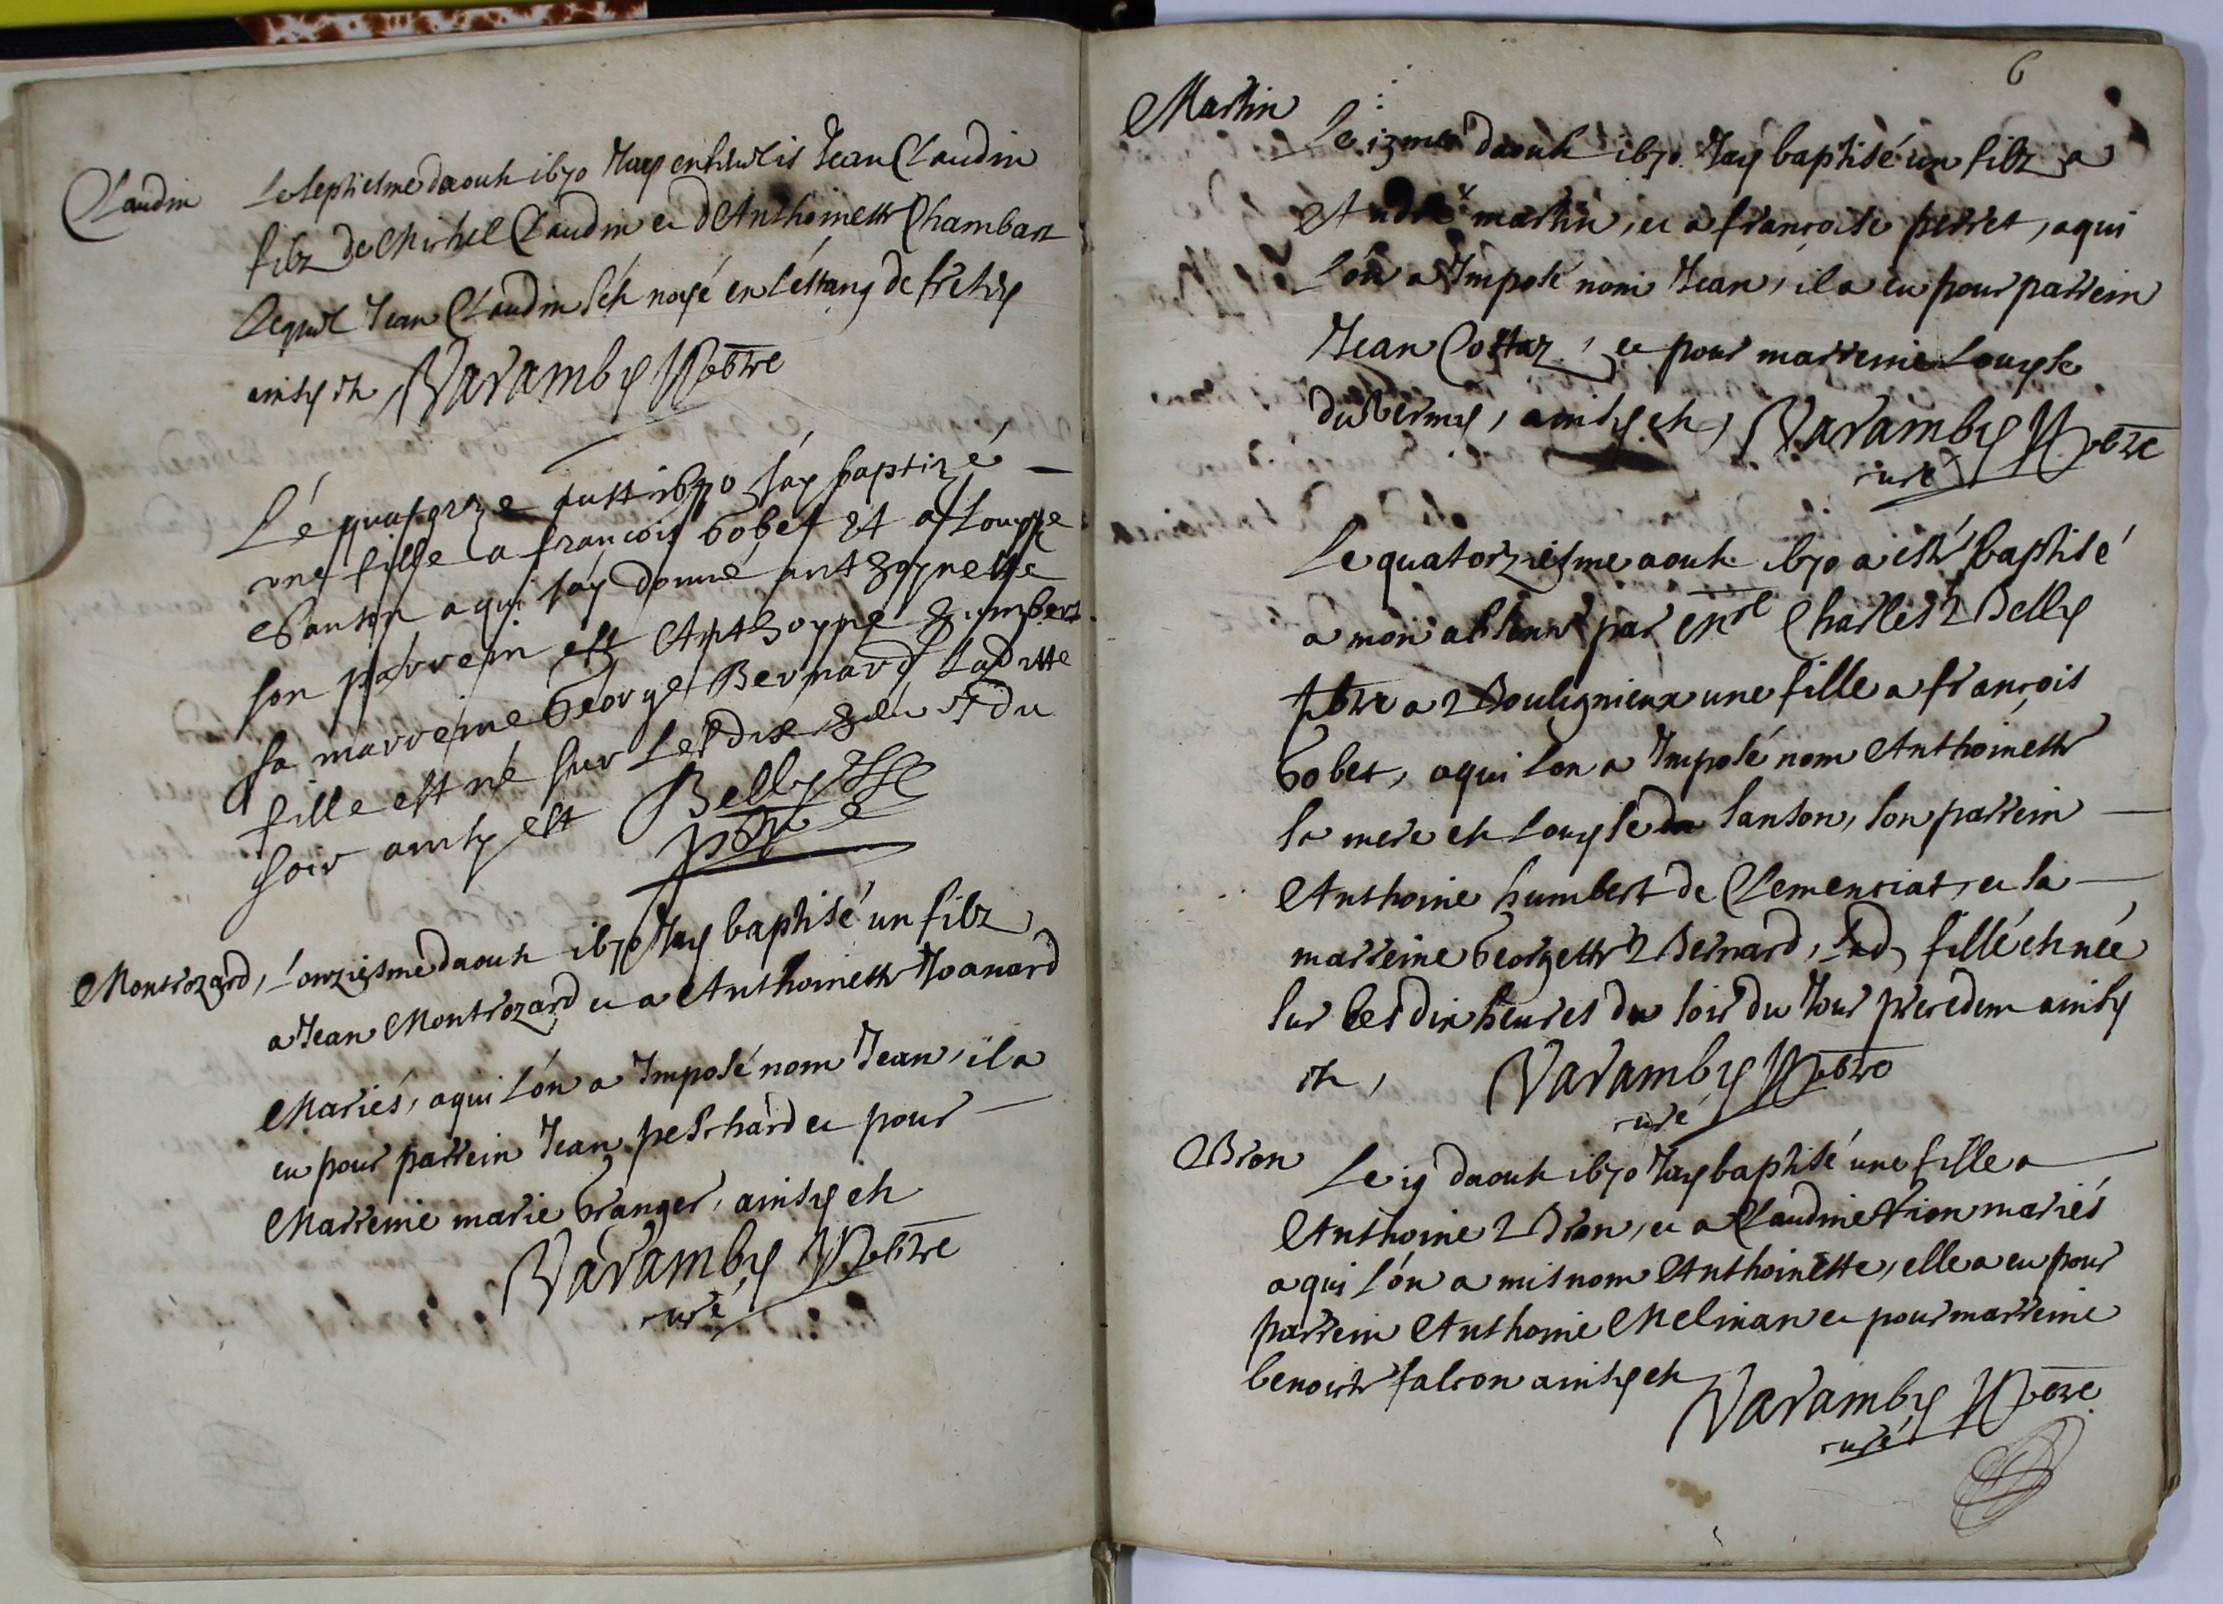 Claudin
Le septiesme daoust 1670 Jay ensevelis Jean Claudin
filz de Michel Claudin et dAnthoinette Chambart
lequel Jean Claudin sest noyé en lestang de
ainsy est, Varamby Pbtre
Lé quatorze aust 1670 jay baptizé
une fille a francois Gobet et a Louyse
Sanson a qui jay donné anthoynette
son parrein est Anthoyne humbert
sa marreine George Bernard Laditte
fille est né sur les dix heu du
soir ainsy est Belly
pbtre
Montrozard, Lonziesme daoust 1670 Jay baptisé un filz
a Jean Montrozard et a Anthoinette Joanard
Mariés, a qui lón a Imposé nom Jean, il a
eu pour parrein Jean peschard et pour
Marreine marie Granger, ainsy est
Varamby Pbtre
curé
6
Martin
Le 13me daoust 1670. Jay baptisé un filz a
André martin, et a francoise perret, a qui
lón a Imposé nom Jean, il a eu pour parrein
Jean Costaz, et pour marreine Louyse
duvernay, ainsy est, Varamby Pbtre
curé
Le quatorziesme aoust 1670 a esté baptisé
a mon absence par Mre Charles Belly
pbtre a Boulignieux une fille a françois
Gobet, a qui lon a Imposé nom Anthoinette
sa mere est Louyse Sanson, son parrein
Anthoine humbert de Clemenciat, et sa
marreine Georgette Bernard, Lad fille est née
sur les dix heures du soir du Jour precedent ainsy
est, Varamby Pbtre
curé
Bron
Le 19 daoust 1670 Jay baptisé une fille a
Anthoine Bron, et a Claudine mariés
a qui lón a mis nom Anthoinette, elle a eu pour
parrein Anthoine Melinan et pour marreine
benoiste falcon ainsy est Varamby Pbtre
curé